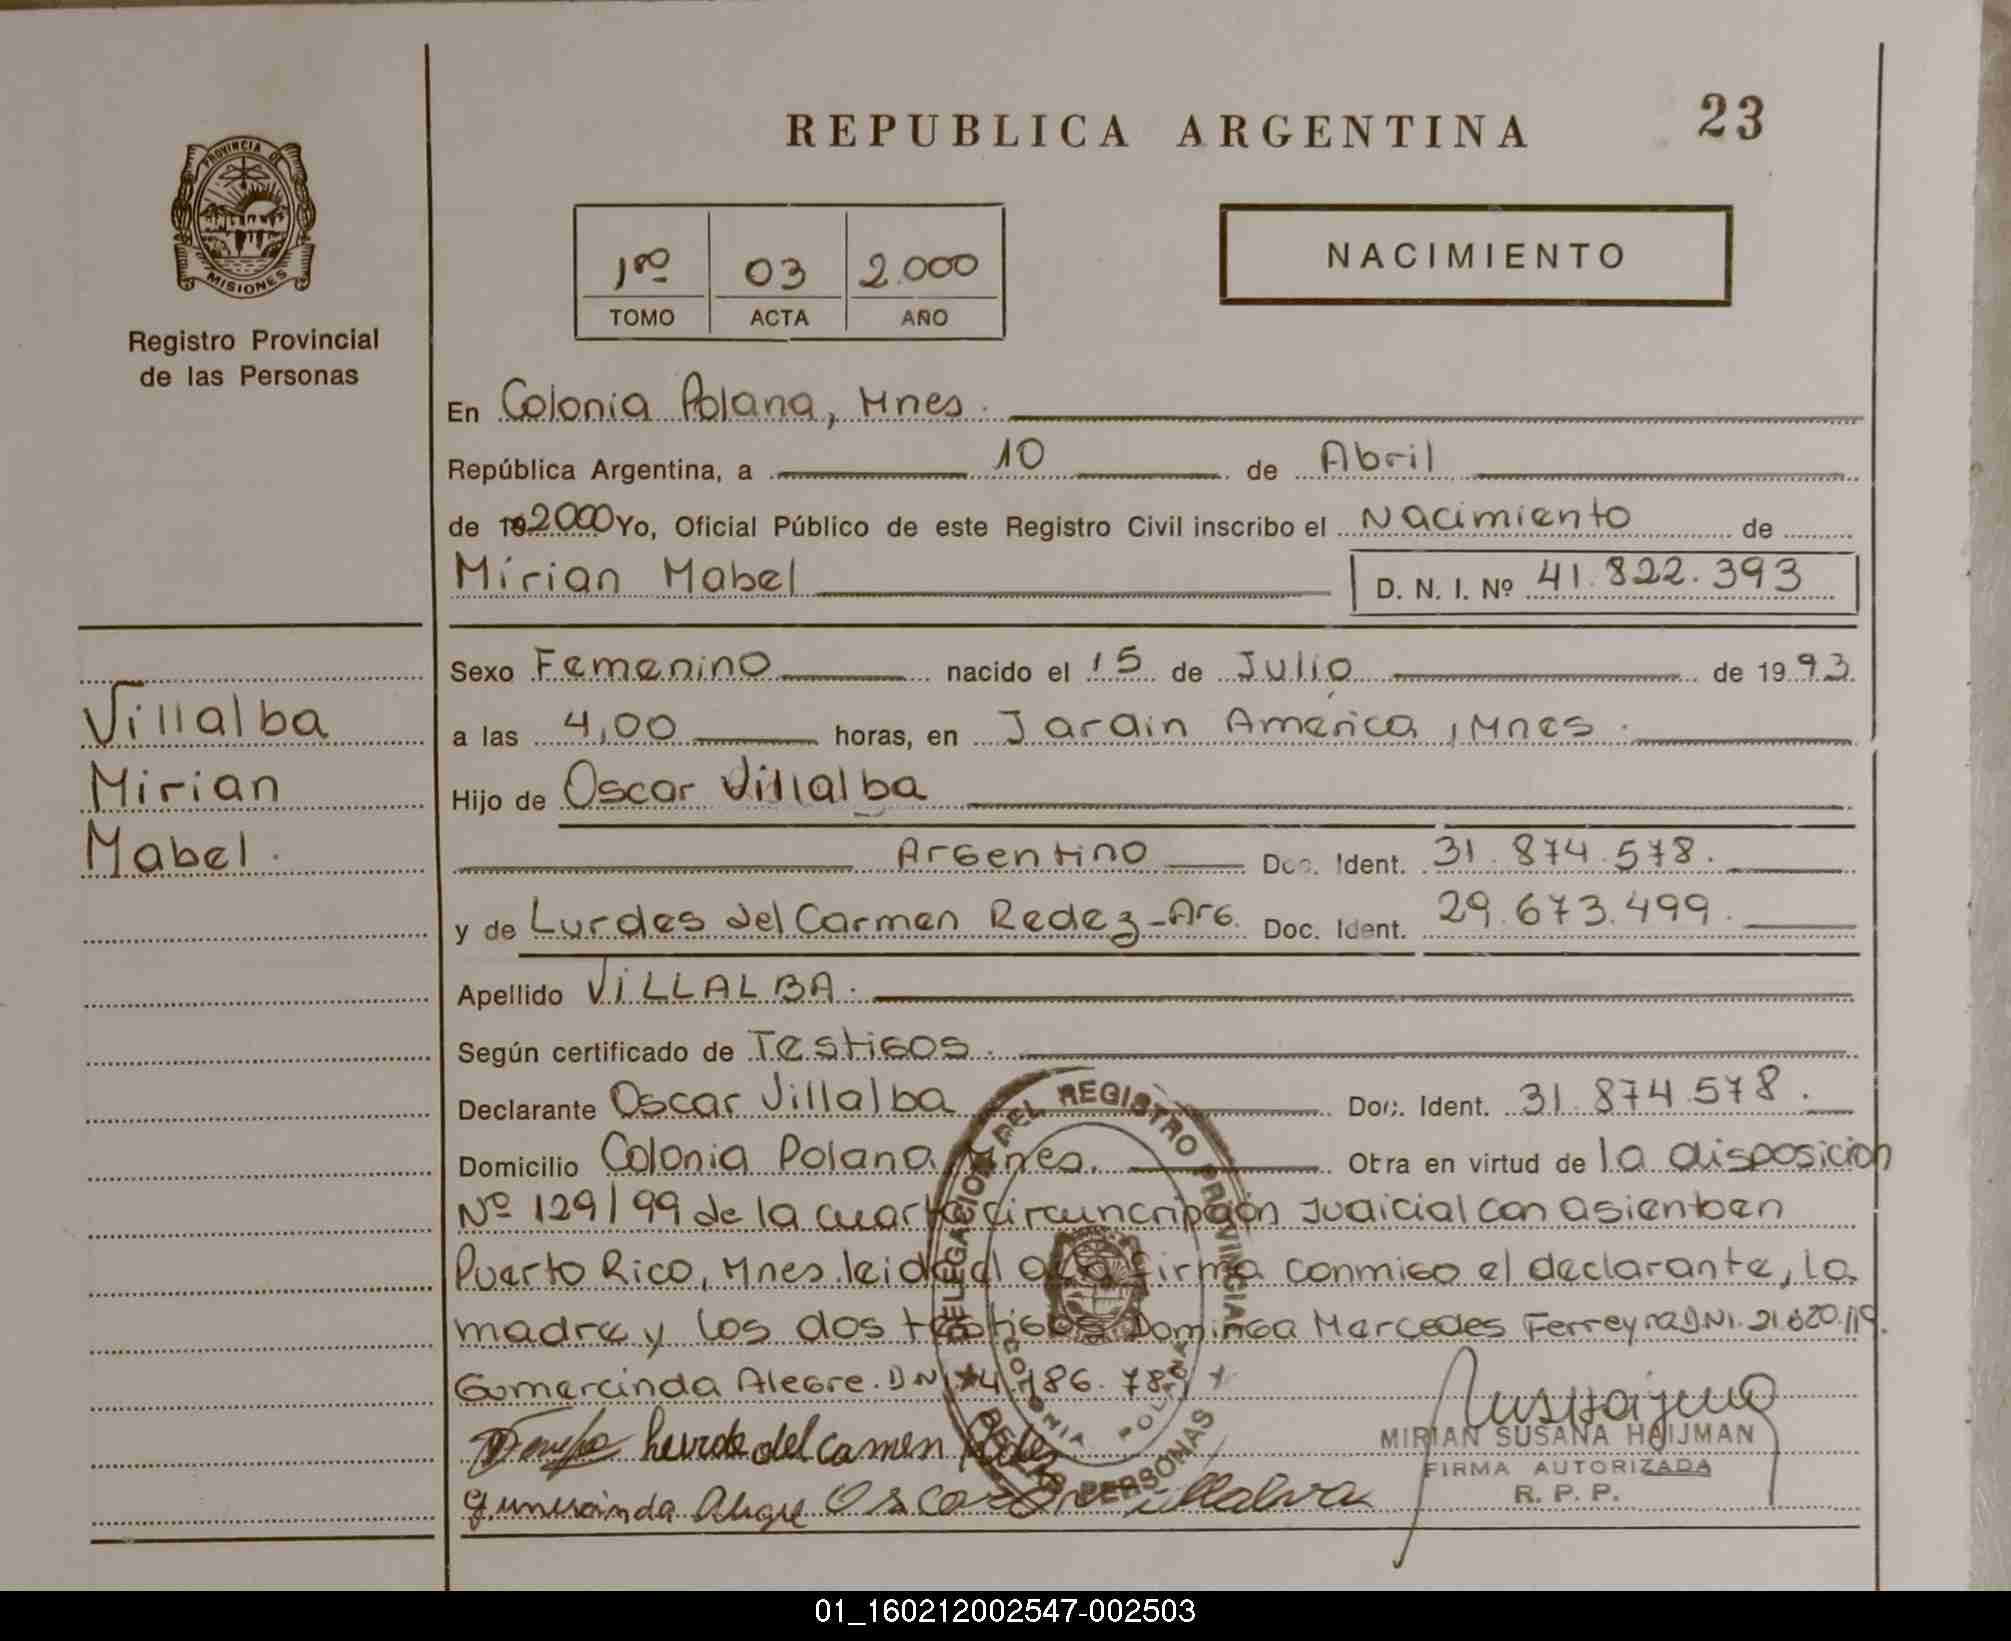 REPUBLICA ARGENTINA
23
PROVINCIA DE
MISIONES
Registro Provincial
de las Personas
1ro 03 2.000
TOMO ACTA AÑO
NACIMIENTO
En Colonia Polana, Mnes.
República Argentina, a 10 de Abril
de 19 2000 Yo, Oficial Público de este Registro Civil inscribo el Nacimiento de
Mirian Mabel D. N. I. Nº 41.822.393
Villalba
Mirian
Mabel.
Sexo Femenino nacido el 15 de Julio de 1993
a las 4,00 horas, en Jardin América, Mnes.
Hijo de Oscar Villalba
Argentino Doc. Ident. 31.874.578.
y de Lurdes del Carmen Redez - Arg. Doc. Ident. 29.673.499.
Apellido VILLALBA.
Según certificado de Testigos.
Declarante Oscar Villalba Doc. Ident. 31.874.578.
Domicilio Colonia Polana, Mnes. Obra en virtud de la disposición
Nº 129/99 de la cuarta circuncripción Judicial con asiento en
Puerto Rico, Mnes. leida el acta firma conmigo el declarante, la
madre y los dos testigos Dominga Mercedes Ferreyra DNI.
Gomercinda Alegre. DNI
DELEGACION DEL REGISTRO PROVINCIAL
DE LAS PERSONAS
COLONIA POLANA
MIRIAN SUSANA HAIJMAN
FIRMA AUTORIZADA
R. P. P.
01_160212002547-002503